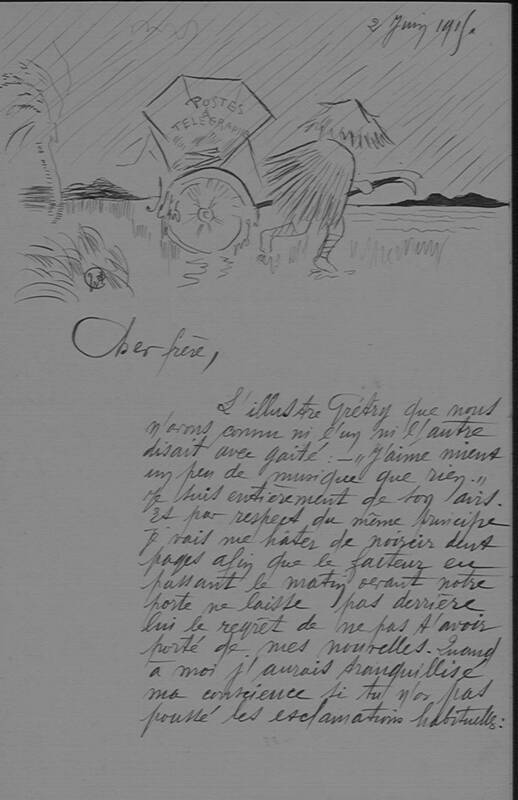 2 Juin 1915.
POSTES
&
TELEGRAPHE
Cher frère,
L'illustre Grétry que nous
n'avons connu ni l'un ni l'autre
disait avec gaité : — "J'aime mieux
un peu de musique que rien."
Je suis entièrement de son avis.
Et par respect du même principe
je vais me hâter de noircir deux
pages afin que le facteur en
passant le matin devant notre
porte ne laisse pas derrière
lui le regret de ne pas t'avoir
porté de mes nouvelles. Quand
à moi j'aurais tranquillisé
ma conscience si tu n'as pas
poussé les exclamations habituelles :